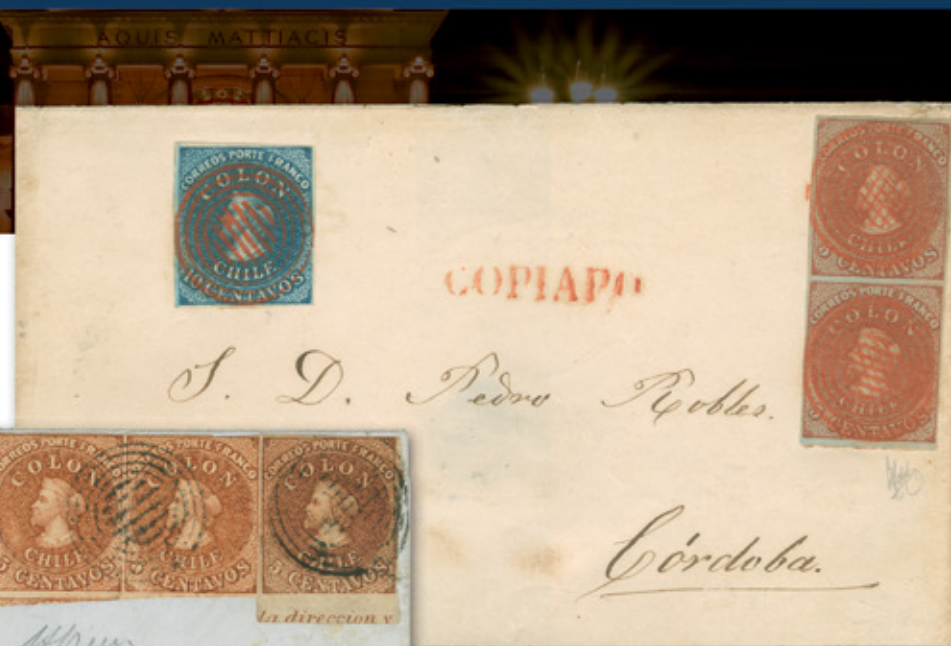 AQUIS MATTIACIS
CORREOS PORTE FRANCO
COLON
CHILE
10 CENTAVOS
COPIAPO
CORREOS PORTE FRANCO
COLON
CHILE
5 CENTAVOS
CORREOS PORTE FRANCO
COLON
CHILE
5 CENTAVOS
S. D. Pedro Robles.
Córdoba.
CORREOS PORTE FRANCO
COLON
CHILE
5 CENTAVOS
CORREOS PORTE FRANCO
COLON
CHILE
5 CENTAVOS
CORREOS PORTE FRANCO
COLON
CHILE
5 CENTAVOS
la direccion y